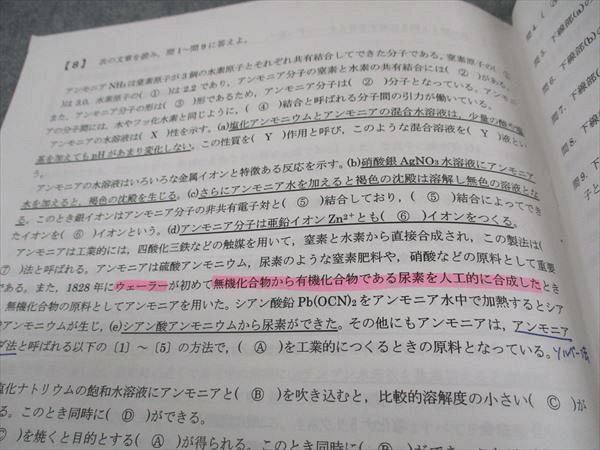 【8】 次の文章を読み、問1～問9に答えよ。
アンモニアNH₃は窒素原子が3個の水素原子とそれぞれ共有結合してできた分子である。窒素原子の( ①
)は3.0、水素原子の( ① )は2.2であり、アンモニア分子の窒素と水素の共有結合には( ② )がある。
また、アンモニア分子の形は( ③ )形であるため、アンモニア分子は( ② )分子となっている。アンモニ
アの分子間には、水やフッ化水素と同じように、( ④ )結合と呼ばれる分子間の引力が働いている。
アンモニアの水溶液は( X )性を示す。(a)塩化アンモニウムとアンモニアの混合水溶液は、少量の酸や塩
基を加えてもpHがあまり変化しない。この性質を( Y )作用と呼び、このような混合溶液を( Y )液とい
う。
アンモニアの水溶液はいろいろな金属イオンと特徴ある反応を示す。(b)硝酸銀AgNO₃水溶液にアンモニア
水を加えると、褐色の沈殿を生じる。(c)さらにアンモニア水を加えると褐色の沈殿は溶解し無色の溶液とな
る。このとき銀イオンはアンモニア分子の非共有電子対と( ⑤ )結合しており、( ⑤ )結合によってでき
たイオンを( ⑥ )イオンという。(d)アンモニア分子は亜鉛イオンZn²⁺とも( ⑥ )イオンをつくる。
アンモニアは工業的には、四酸化三鉄などの触媒を用いて、窒素と水素から直接合成され、この製法は(
⑦ )法と呼ばれる。アンモニアは硫酸アンモニウム、尿素のような窒素肥料や、硝酸などの原料として重要
である。また、1828年にウェーラーが初めて無機化合物から有機化合物である尿素を人工的に合成したとき
無機化合物の原料としてアンモニアを用いた。シアン酸鉛Pb(OCN)₂をアンモニア水中で加熱するとシア
アンモニウムが生じ、(e)シアン酸アンモニウムから尿素ができた。その他にもアンモニアは、アンモニア
ダ法と呼ばれる以下の〔1〕～〔5〕の方法で、( Ⓐ )を工業的につくるときの原料となっている。ソルベー法
塩化ナトリウムの飽和水溶液にアンモニアと( Ⓑ )を吹き込むと、比較的溶解度の小さい( Ⓒ )が
る。このとき同時に( Ⓓ )ができる。
Ⓒ )を焼くと目的とする( Ⓐ )が得られる。このとき同時に( Ⓑ )ができ
問5. 下線部(a)
問6. 下線部
問7. 下線部
問8. 下線